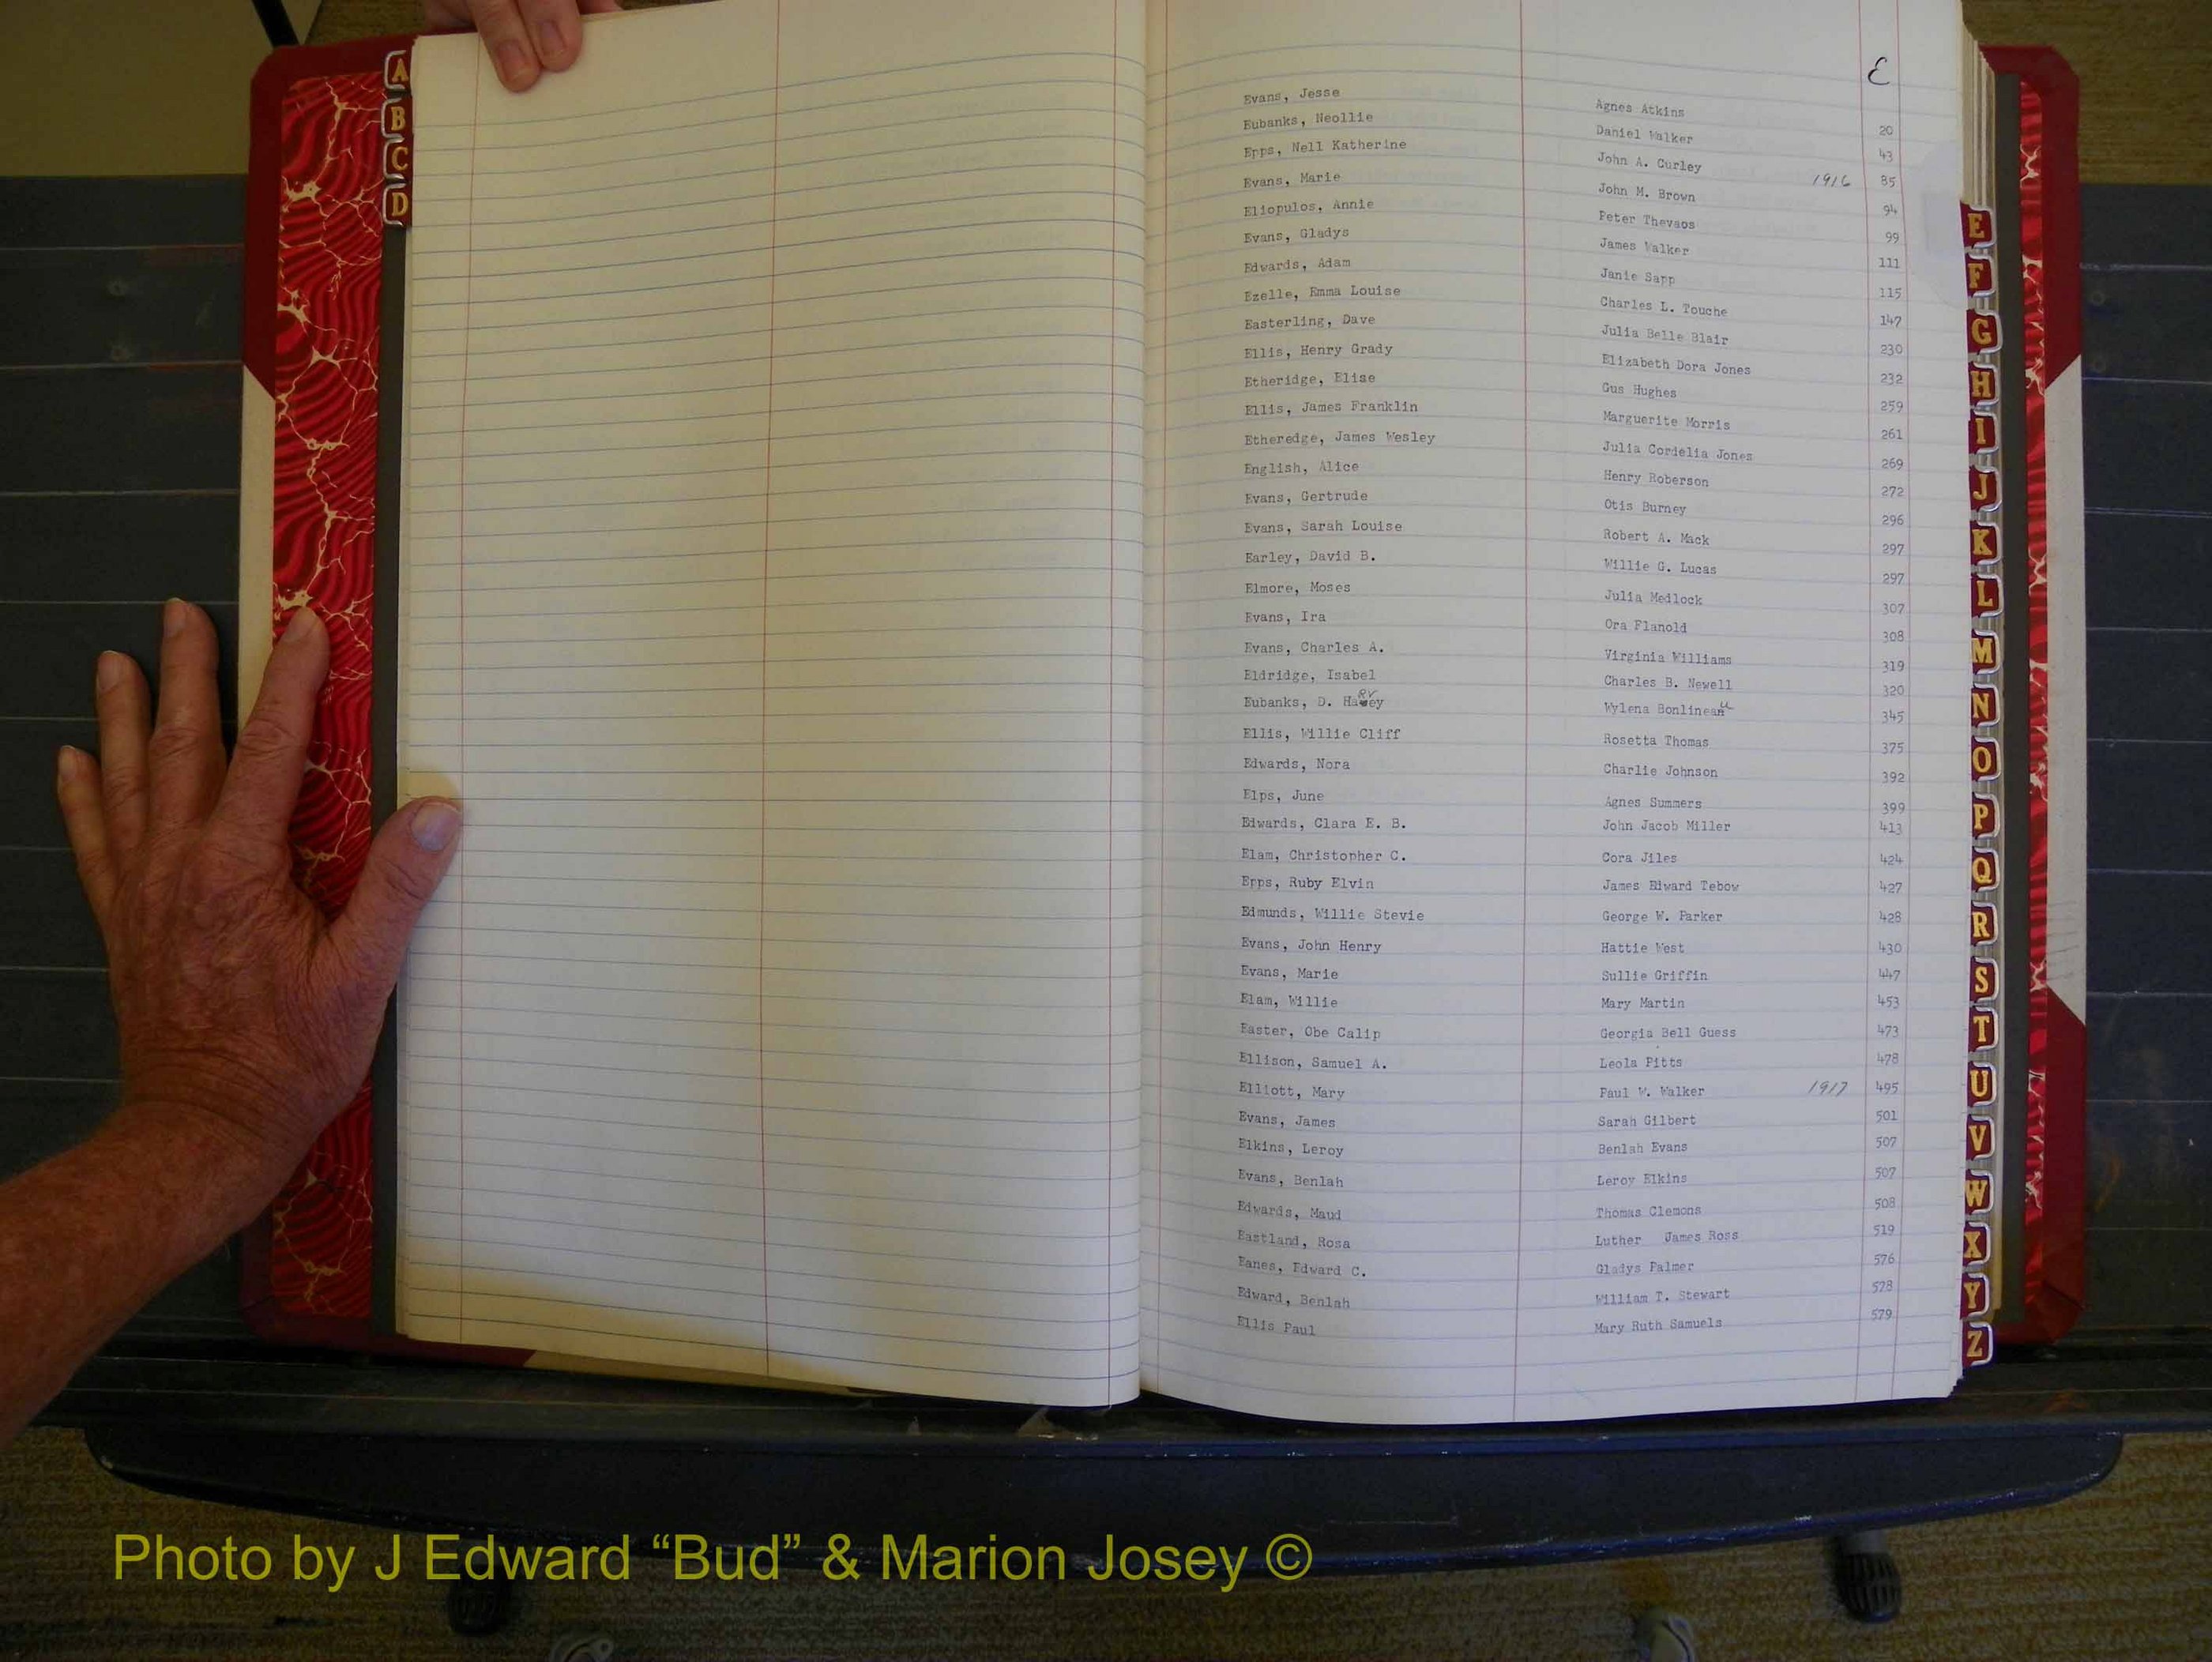 A
B
C
D
E
Evans, Jesse Agnes Atkins 20
Eubanks, Neollie Daniel Walker 43
Epps, Nell Katherine John A. Curley 1916 85
Evans, Marie John M. Brown 94
Eliopulos, Annie Peter Thevaos 99
Evans, Gladys James Walker 111
Edwards, Adam Janie Sapp 115
Ezelle, Emma Louise Charles L. Touche 147
Easterling, Dave Julia Belle Blair 230
Ellis, Henry Grady Elizabeth Dora Jones 232
Etheridge, Elise Gus Hughes 259
Ellis, James Franklin Marguerite Morris 261
Etheredge, James Wesley Julia Cordelia Jones 269
English, Alice Henry Roberson 272
Evans, Gertrude Otis Burney 296
Evans, Sarah Louise Robert A. Mack 297
Earley, David B. Willie G. Lucas 297
Elmore, Moses Julia Medlock 307
Evans, Ira Ora Flanold 308
Evans, Charles A. Virginia Williams 319
Eldridge, Isabel Charles B. Newell 320
Eubanks, D. Harvey Wylena Bonlineau 345
Ellis, Willie Cliff Rosetta Thomas 375
Edwards, Nora Charlie Johnson 392
Elps, June Agnes Summers 399
Edwards, Clara E. B. John Jacob Miller 413
Elam, Christopher C. Cora Jiles 424
Epps, Ruby Elvin James Edward Tebow 427
Edmunds, Willie Stevie George W. Parker 428
Evans, John Henry Hattie West 430
Evans, Marie Sullie Griffin 447
Elam, Willie Mary Martin 453
Easter, Obe Calip Georgia Bell Guess 473
Ellison, Samuel A. Leola Pitts 478
Elliott, Mary Paul W. Walker 1917 495
Evans, James Sarah Gilbert 501
Elkins, Leroy Benlah Evans 507
Evans, Benlah Leroy Elkins 507
Edwards, Maud Thomas Clemons 508
Eastland, Rosa Luther James Ross 519
Eanes, Edward C. Gladys Palmer 576
Edward, Benlah William T. Stewart 578
Ellis Paul Mary Ruth Samuels 579
E
F
G
H
I
J
K
L
M
N
O
P
Q
R
S
T
U
V
W
X
Y
Z
Photo by J Edward “Bud” & Marion Josey ©